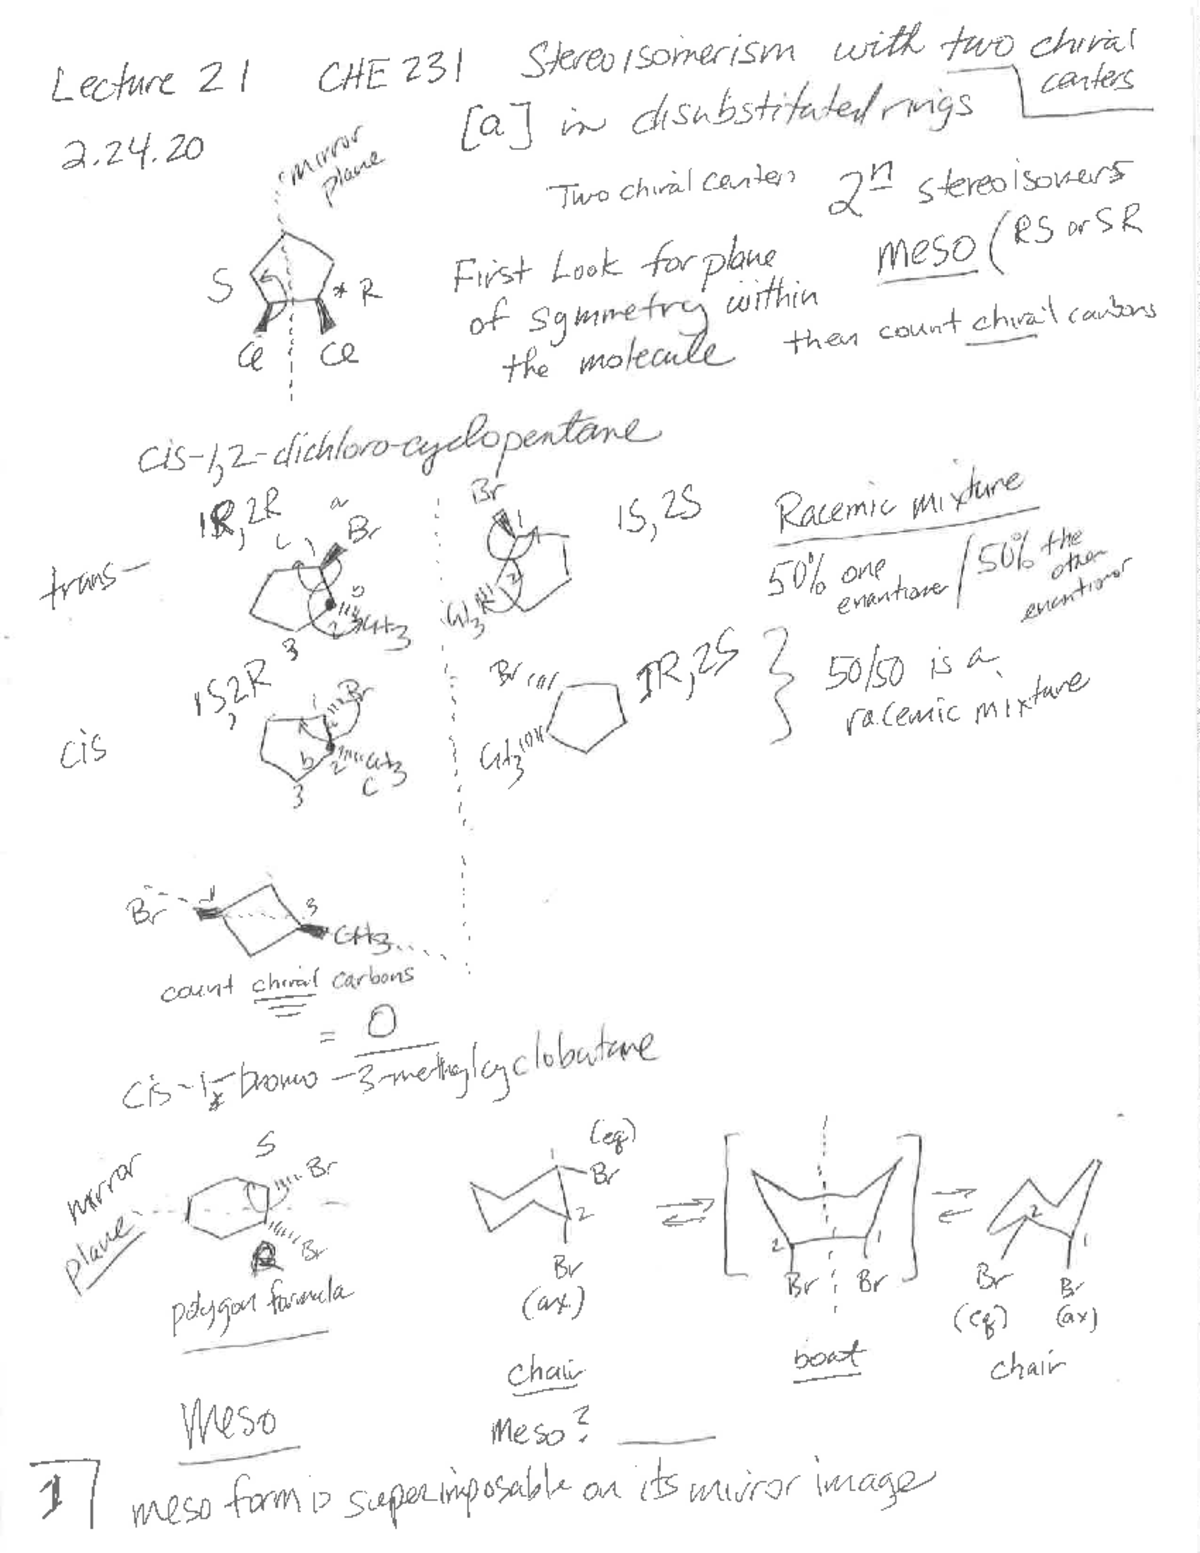 Lecture 21 CHE 231 Stereoisomerism with two chiral centers
2.24.20 [a] in disubstituted rings
mirror plane
Two chiral centers 2^n stereoisomers
S * R
First Look for plane meso (RS or SR
of symmetry within
the molecule then count chiral carbons
Cl Cl
cis-1,2-dichloro-cyclopentane
trans-
1R,2R
a
Br
1
2
CH3
3
Br
1
2
CH3
1S,2S
Racemic mixture
50% one enantiomer / 50% the other enantiomer
cis
1S,2R
1
Br
b
2
CH3
c
3
Br
CH3
1R,2S
50/50 is a
racemic mixture
Br
1
3
CH3
count chiral carbons
= 0
cis-1-bromo-3-methylcyclobutane
mirror
plane
S
Br
R
Br
polygon formula
(eq)
1
Br
2
Br
(ax)
chair
2
1
Br Br
boat
2
1
Br Br
(eq) (ax)
chair
meso
meso?
1 meso form is superimposable on its mirror image